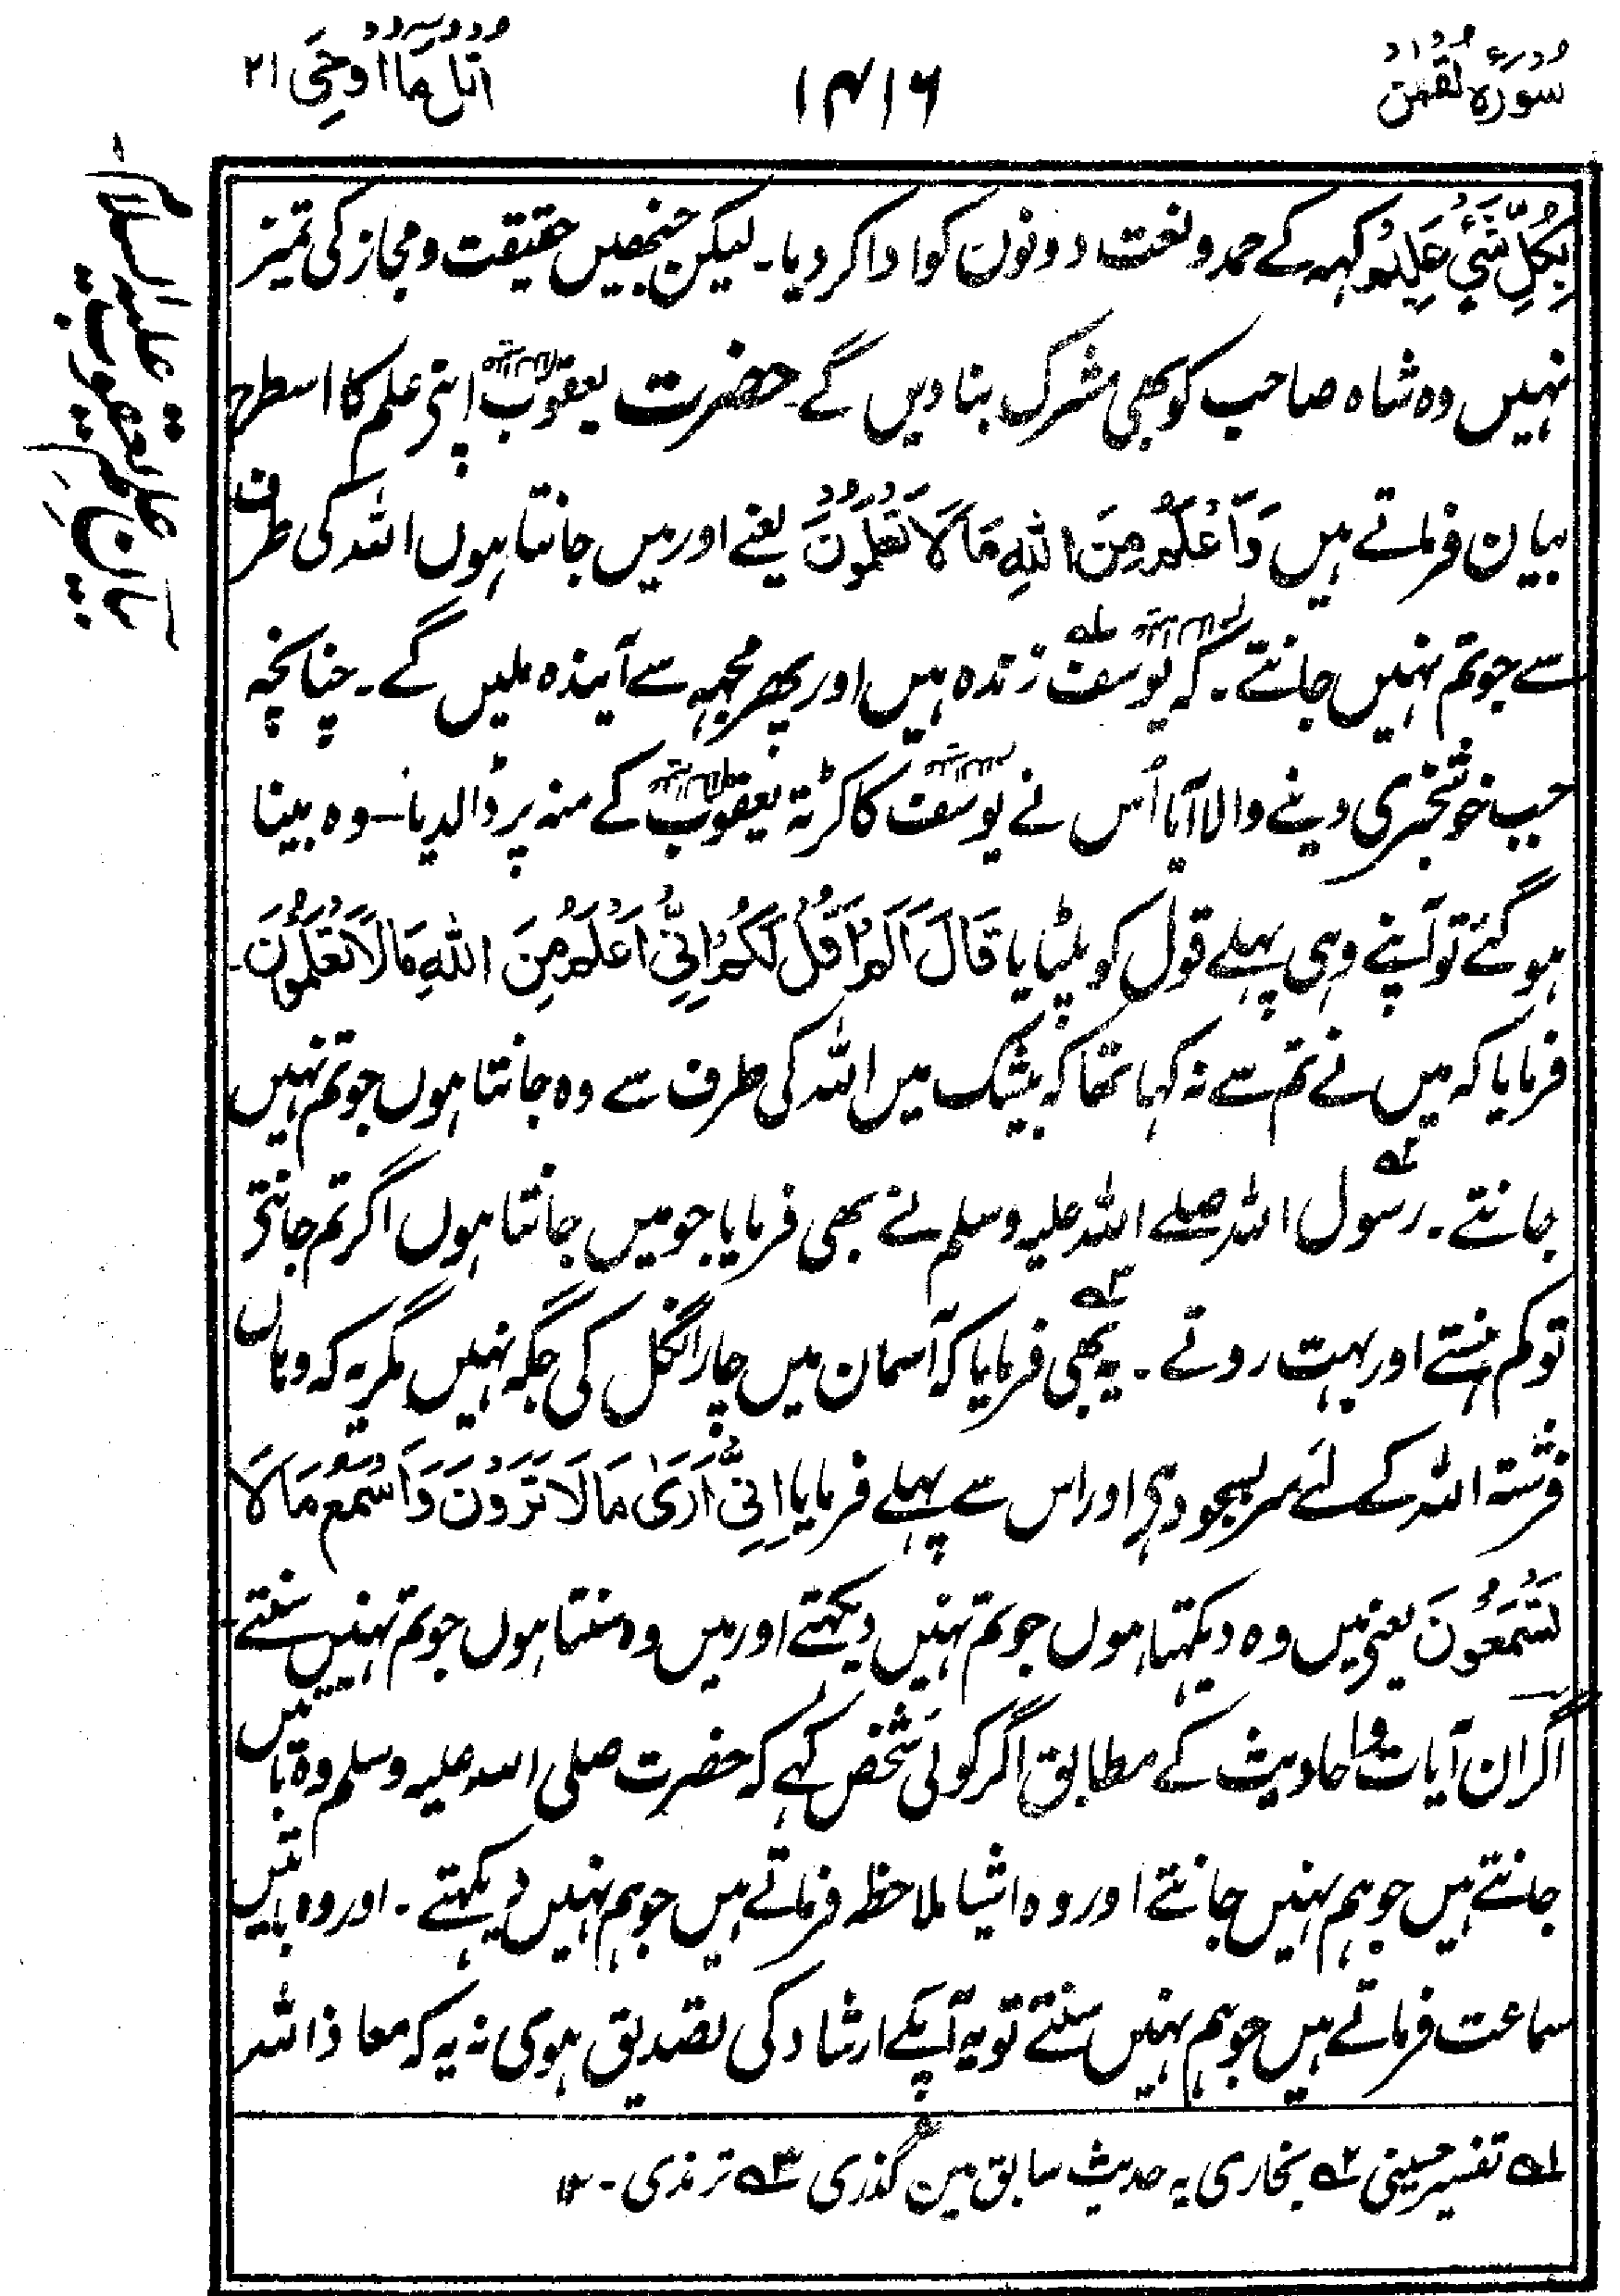 سُورَۃُ لُقْمٰن
۱۴۱۶
اُتْلُ مَا اُوْحِیَ ۲۱
بِکُلِّ شَیْءٍ عَلِیْمٌ کہہ کے حمد و نعت دونوں کو ادا کر دیا۔ لیکن جنھیں حقیقت و مجاز کی تمیز
نہیں وہ شاہ صاحب کو بھی مشرک بنا دیں گے۔ حضرت یعقوب علیہ السلام اپنی علم کا اسطرح
بیان فرماتے ہیں وَاَعْلَمُ مِنَ اللّٰہِ مَا لَا تَعْلَمُوْنَ یعنے اور میں جانتا ہوں اللہ کی طرف
سے جو تم نہیں جانتے۔ کہ یوسف علیہ السلام ۱؎ زندہ ہیں اور پھر مجھہ سے آیندہ ملیں گے۔ چنانچہ
جب خوشخبری دینے والا آیا اُس نے یوسف علیہ السلام کا کرتہ یعقوب علیہ السلام کے منہ پر ڈالدیا۔ وہ بینا
ہو گئے تو آپنے وہی پہلے قول کو پلٹایا قَالَ اَلَمْ اَقُلْ لَکُمْ اِنِّیْ اَعْلَمُ مِنَ اللّٰہِ مَا لَا تَعْلَمُوْنَ۔
فرمایا کہ میں نے تم سے نہ کہا تھا کہ بیشک میں اللہ کی طرف سے وہ جانتا ہوں جو تم نہیں
جانتے۔ ۲؎ رسول اللہ صلے اللہ علیہ وسلم نے بھی فرمایا جو میں جانتا ہوں اگر تم جانتی
تو کم ہنستے اور بہت روتے۔ ۳؎ یہ بھی فرمایا کہ آسمان میں چار انگل کی جگہ نہیں مگر یہ کہ وہاں
فرشتہ اللہ کے لئے سر بسجود ہی اور اس سے پہلے فرمایا اِنِّیْ اَرٰی مَا لَا تَرَوْنَ وَاَسْمَعُ مَا لَا
تَسْمَعُوْنَ یعنی میں وہ دیکھتا ہوں جو تم نہیں دیکھتے اور میں وہ سنتا ہوں جو تم نہیں سنتے۔
اگر ان آیات و احادیث کے مطابق اگر کوئی شخص کہے کہ حضرت صلی اللہ علیہ وسلم وہ باتیں
جانتے ہیں جو ہم نہیں جانتے اور وہ اشیا ملاحظہ فرماتے ہیں جو ہم نہیں دیکھتے۔ اور وہ باتیں
سماعت فرماتے ہیں جو ہم نہیں سنتے تو یہ آپکے ارشاد کی تصدیق ہوی نہ یہ کہ معاذ اللہ
۱؎ تفسیر حسینی ۲؎ بخاری یہ حدیث سابق مین گذری ۳؎ ترمذی۔ ۱۲
بیان علم یعقوب علیہ السلام